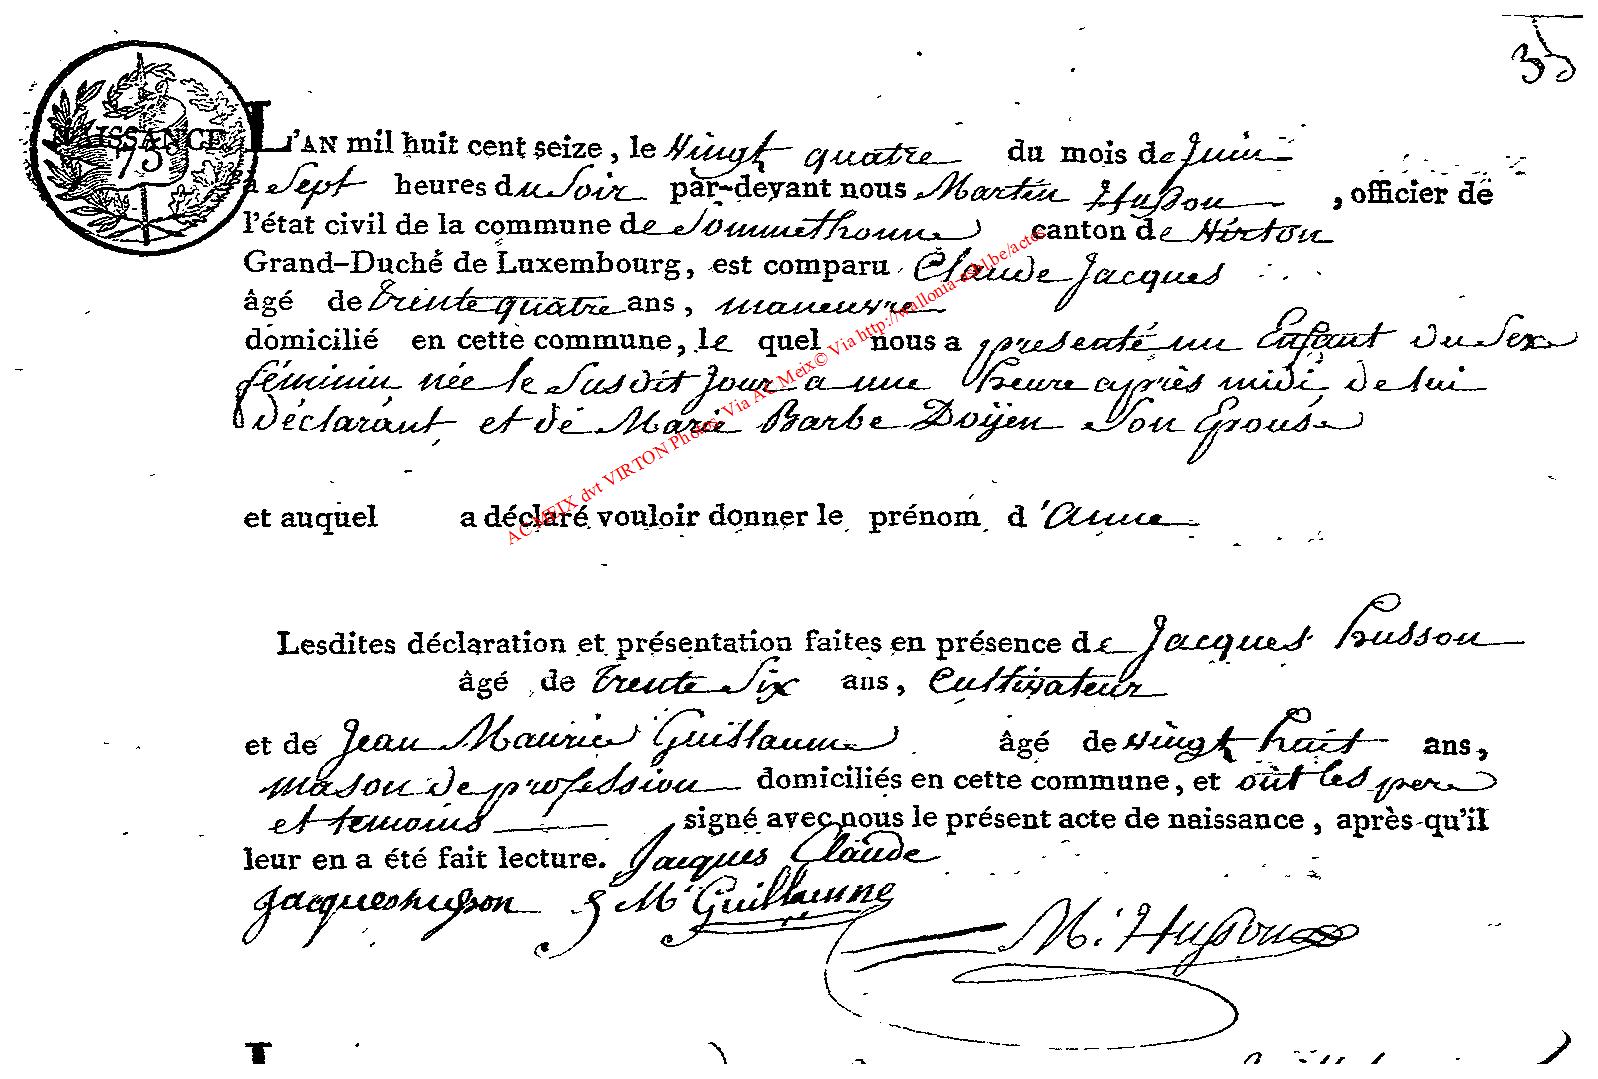 35
NAISSANCE
75
L'AN mil huit cent seize, le vingt quatre du mois de Juin
a Sept heures du Soir par-devant nous Martin Husson, officier de
l'état civil de la commune de Sommethonne canton de Virton
Grand-Duché de Luxembourg, est comparu Claude Jacques
âgé de trente quatre ans, maneuvre
domicilié en cette commune, le quel nous a presenté un Enfant du Sex
féminin née le Susdit Jour a une heure après midi de lui
déclarant et de Marie Barbe Doÿen Son Epouse
et auquel a déclaré vouloir donner le prénom d'Anne
Lesdites déclaration et présentation faites en présence de Jacques husson
âgé de trente Six ans, Cultivateur
et de Jean Maurice Guillaume âgé de vingt huit ans,
mason de profession domiciliés en cette commune, et ont les pere
et temoins signé avec nous le présent acte de naissance, après qu'il
leur en a été fait lecture. Jacques Claude
Jacques husson J M Guillaume
M. Husson
AC MEIX dvt VIRTON Photos Via AC Meix© Via http://wallonia-asbl.be/actes